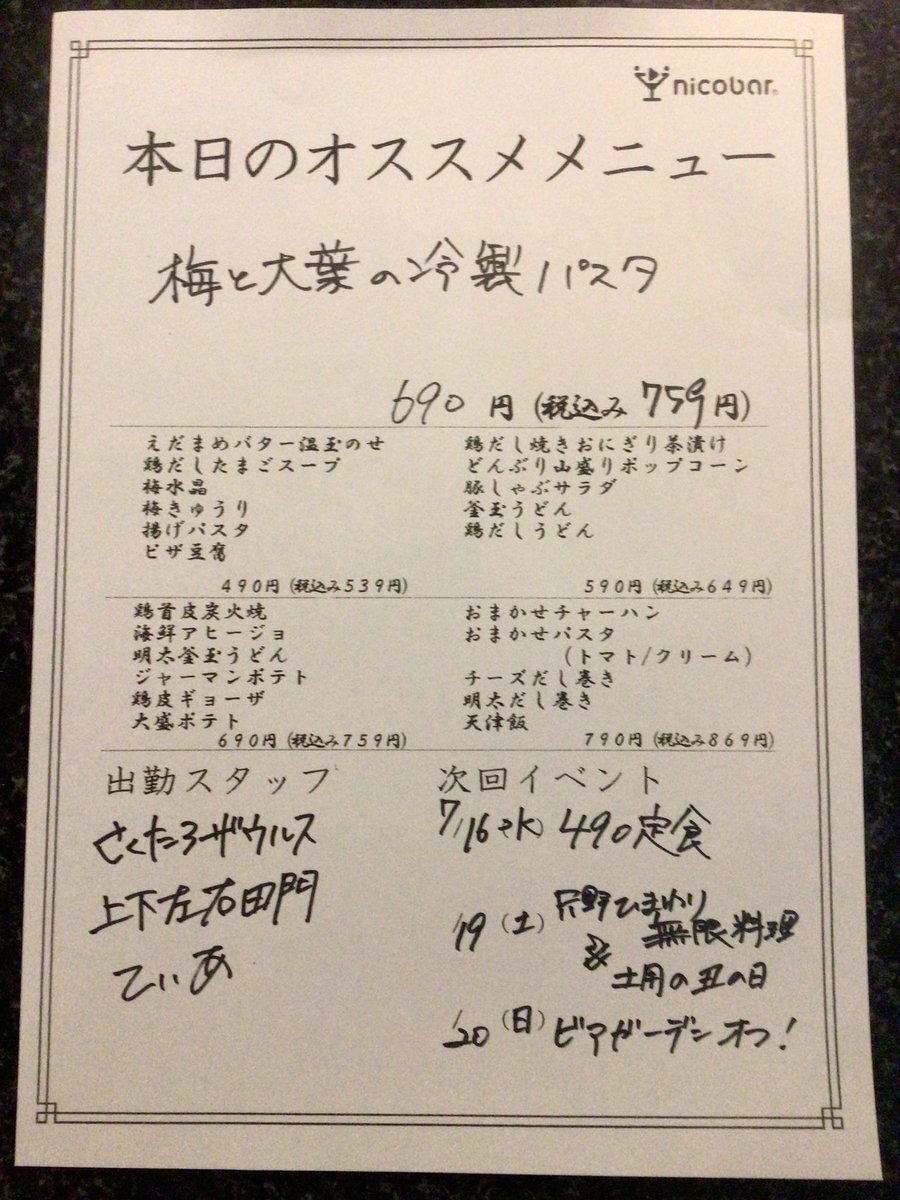 nicobar
本日のオススメメニュー
梅と大葉の冷製パスタ
690円 (税込み759円)
えだまめバター温玉のせ
鶏だしたまごスープ
梅水晶
梅きゅうり
揚げパスタ
ピザ豆腐
490円 (税込み539円)
鶏だし焼きおにぎり茶漬け
どんぶり山盛りポップコーン
豚しゃぶサラダ
釜玉うどん
鶏だしうどん
590円 (税込み649円)
鶏首皮炭火焼
海鮮アヒージョ
明太釜玉うどん
ジャーマンポテト
鶏皮ギョーザ
大盛ポテト
690円 (税込み759円)
おまかせチャーハン
おまかせパスタ
(トマト/クリーム)
チーズだし巻き
明太だし巻き
天津飯
790円 (税込み869円)
出勤スタッフ
さくたろザウルス
上下左右田門
てぃあ
次回イベント
7/16 水) 490定食
19 (土) 只野ひまわり
無限料理
&
土用の丑の日
20 (日) ビアガーデンオフ!